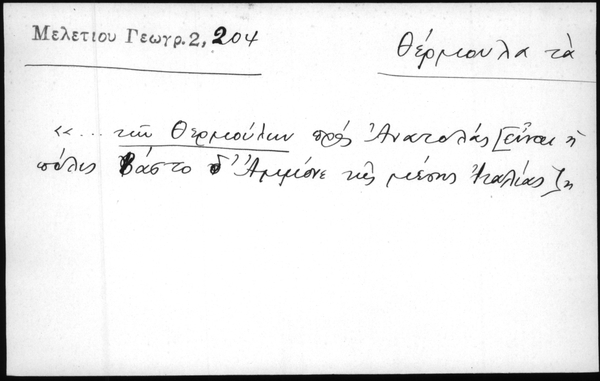 Μελετίου Γεωγρ. 2, 204
Θέρμουλα τὰ
«... τῶν Θερμούλων πρὸς Ἀνατολάς [εἶναι ἡ
πόλις Βάστο δ' Ἀμμόνε τῆς μέσης Ἰταλίας]»